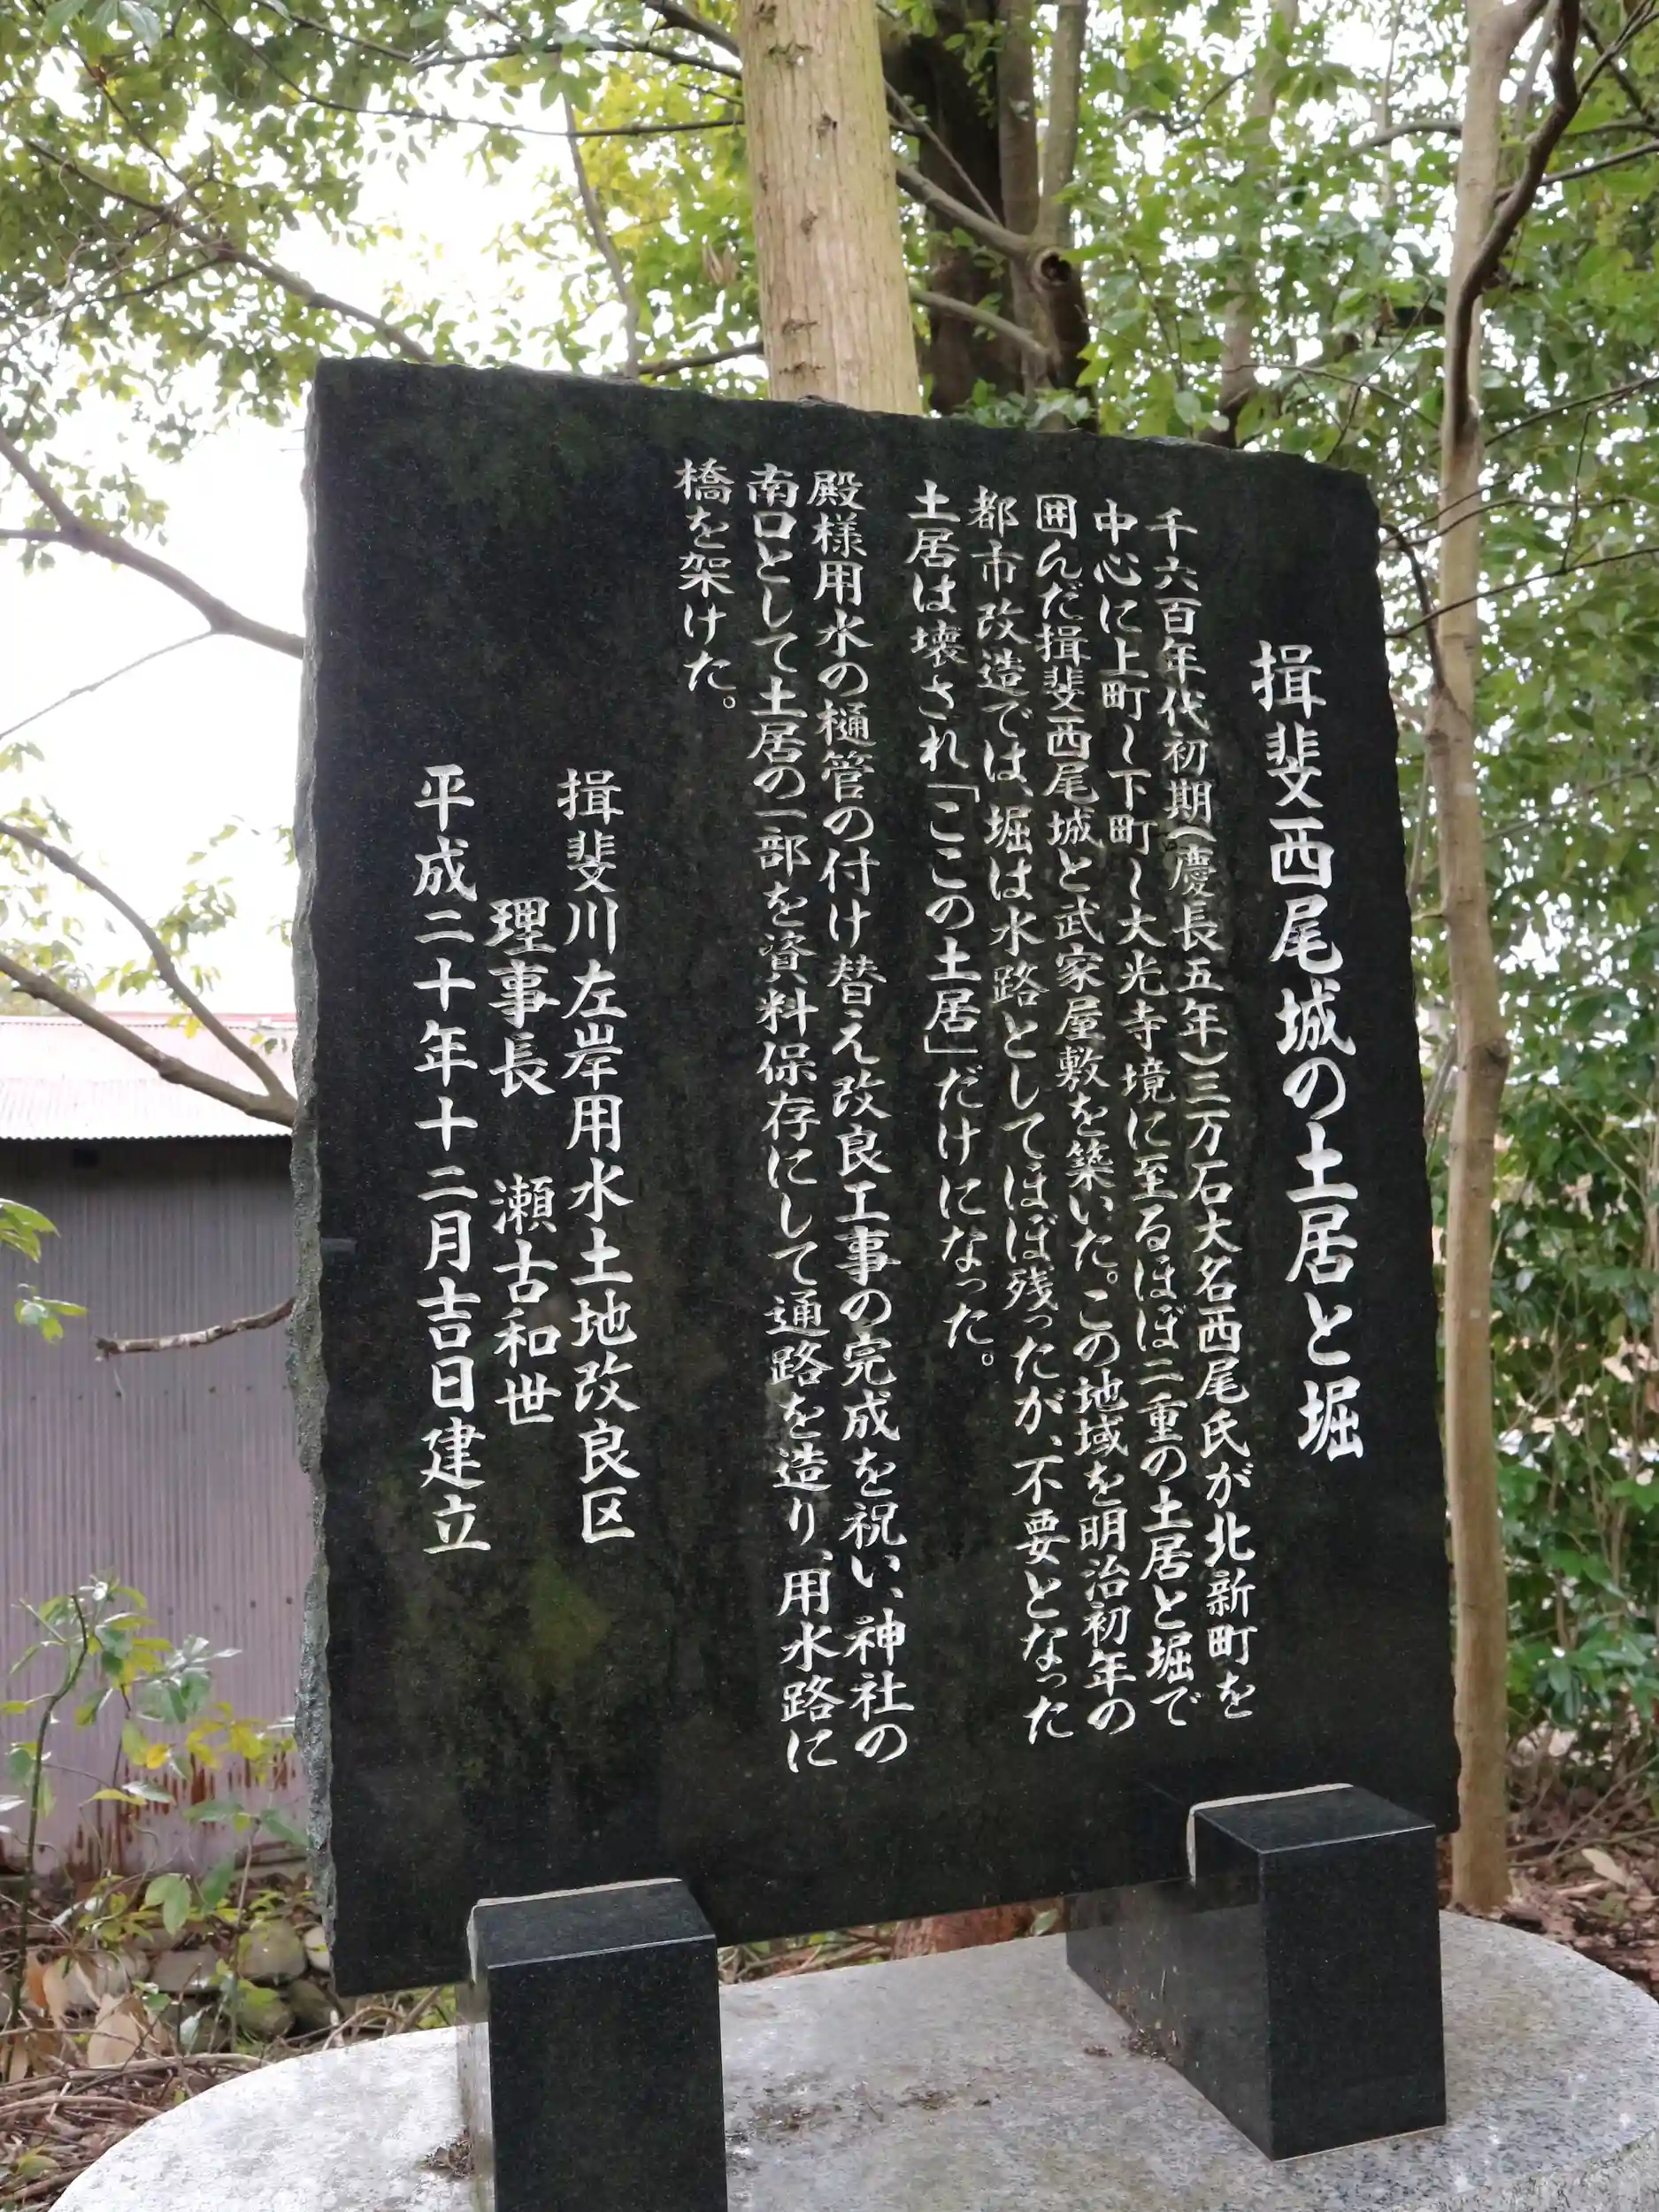 揖斐西尾城の土居と堀
千六百年代初期(慶長五年)三万石大名西尾氏が北新町を
中心に上町〜下町〜大光寺境に至るほぼ二重の土居と堀で
囲んだ揖斐西尾城と武家屋敷を築いた。この地域を明治初年の
都市改造では、堀は水路としてほぼ残ったが、不要となった
土居は壊され「ここの土居」だけになった。
殿様用水の樋管の付け替え改良工事の完成を祝い、神社の
南口として土居の一部を資料保存にして通路を造り、用水路に
橋を架けた。
揖斐川左岸用水土地改良区
理事長 瀬古和世
平成二十年十二月吉日建立